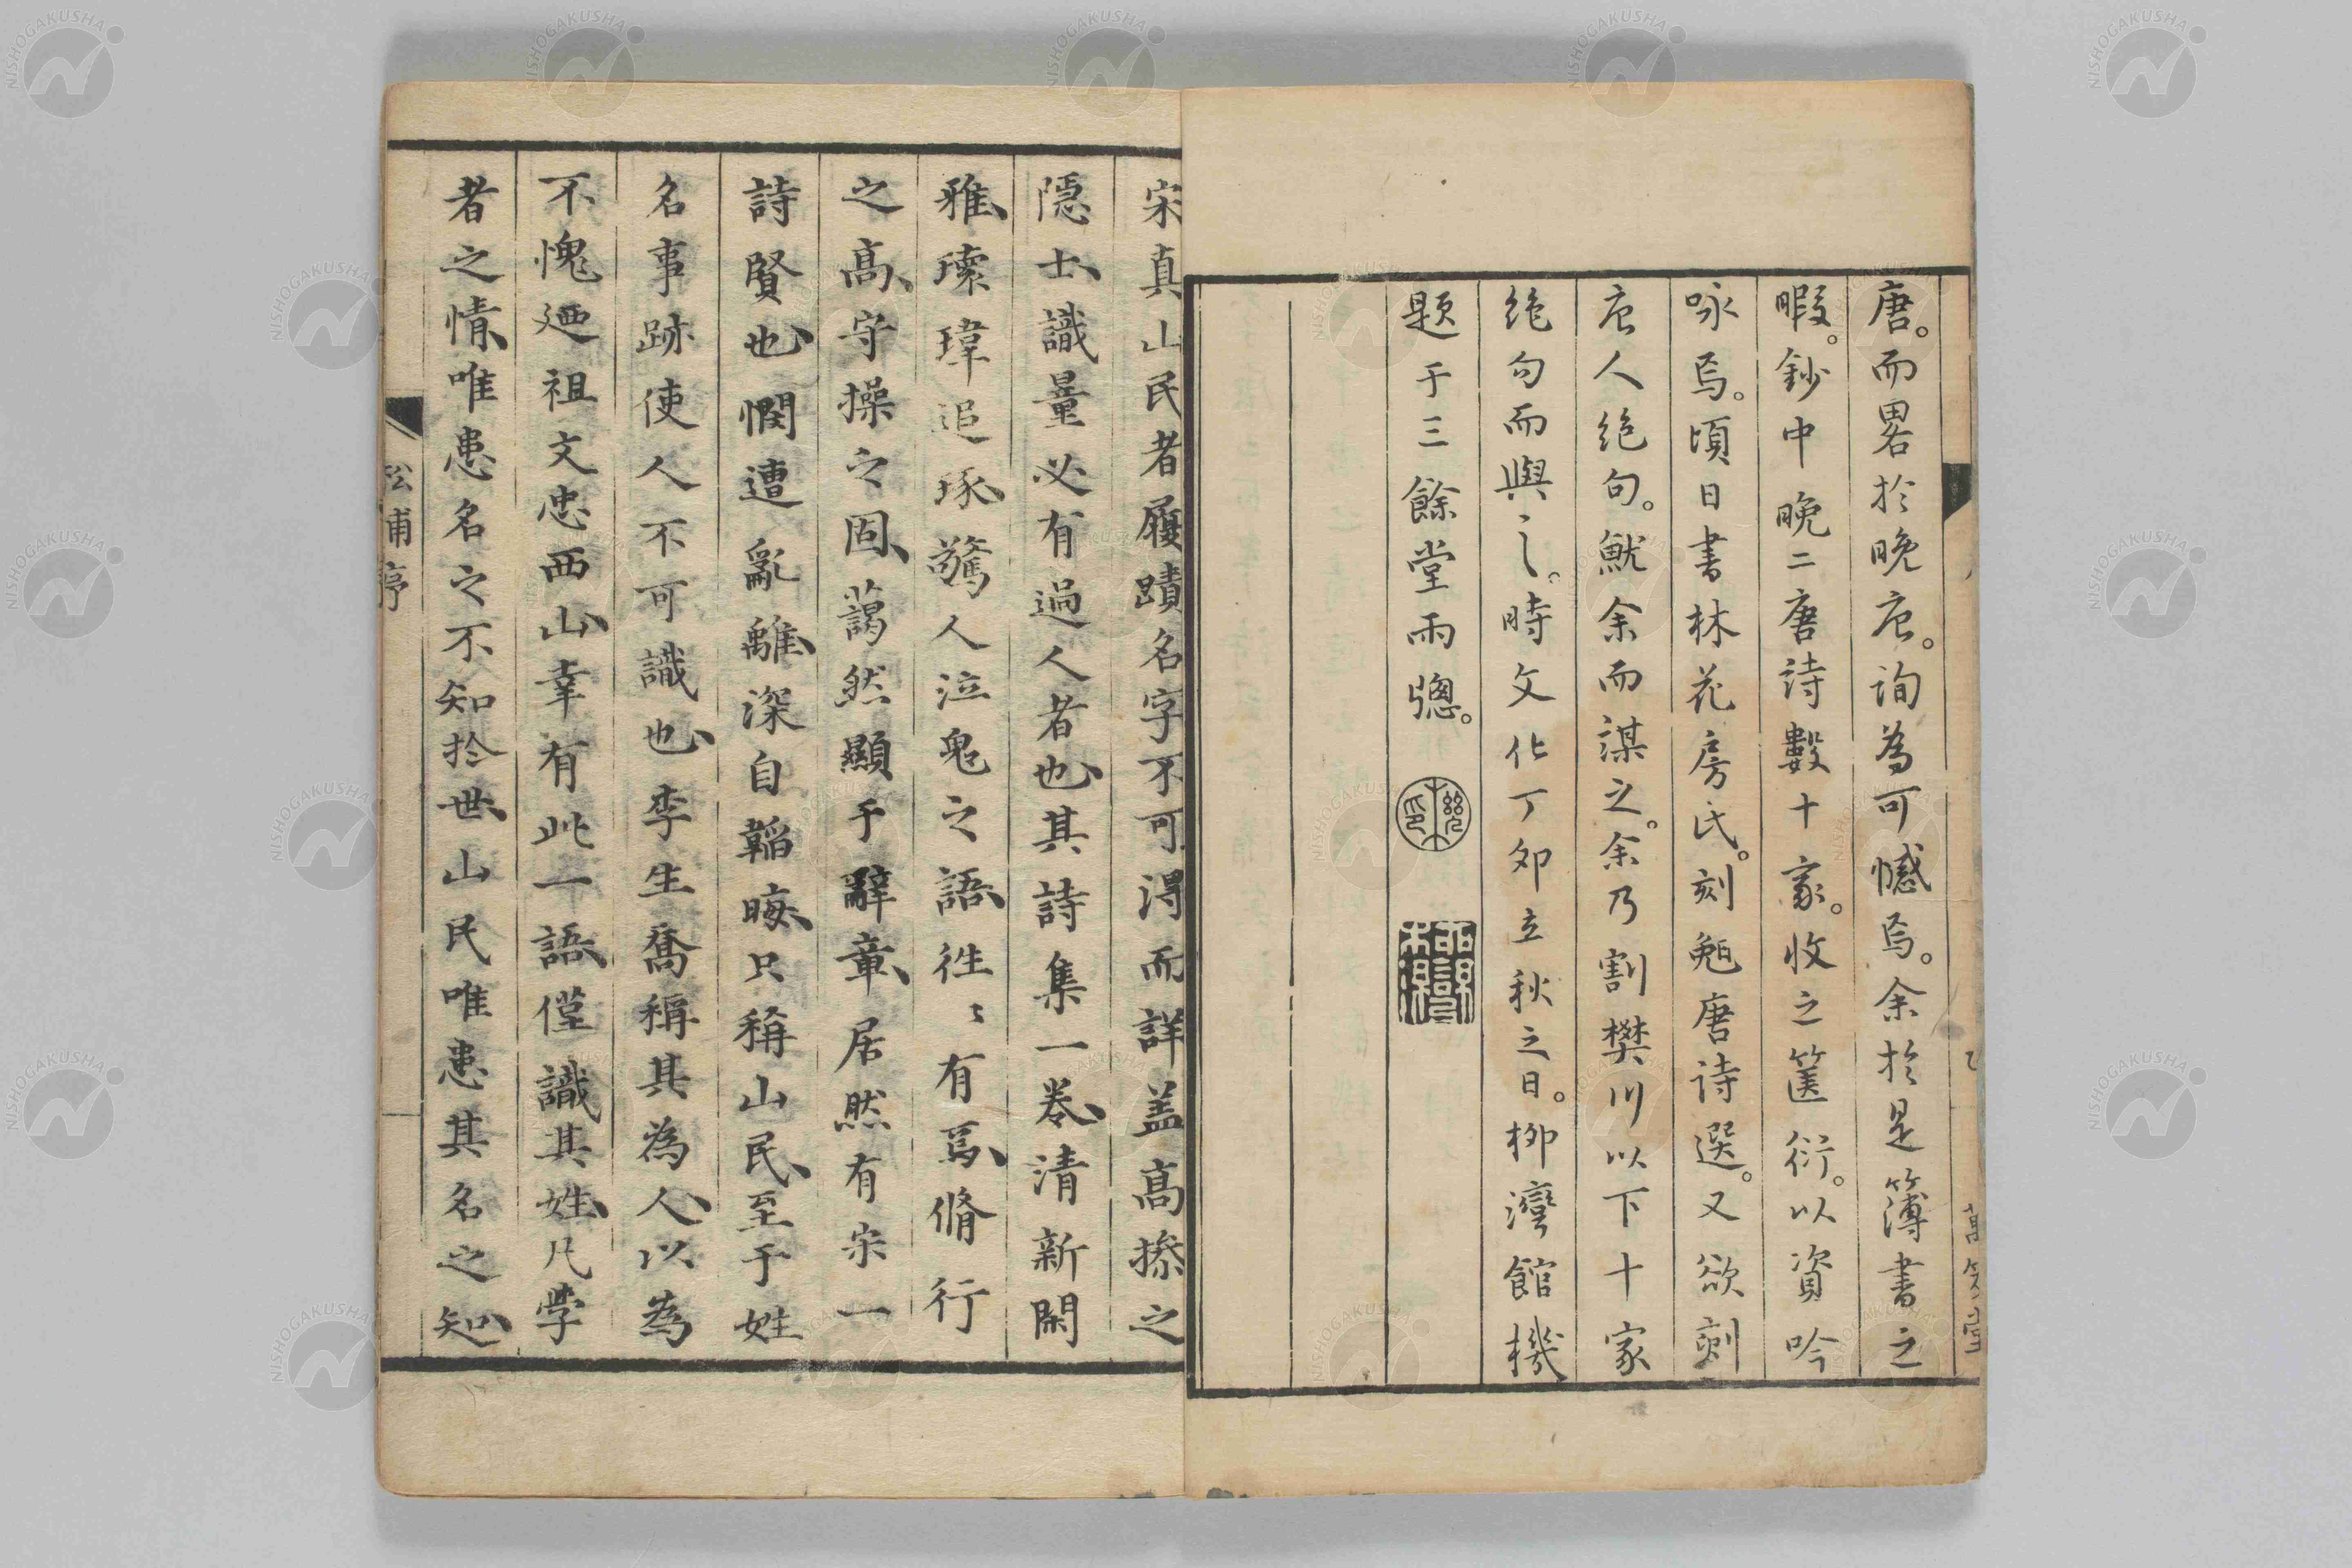 唐。而畧於晚唐。詢為可憾焉。余於是簿書之
暇。鈔中晚二唐詩數十家。收之篋衍。以資吟
咏焉。頃日書林花房氏。刻勉唐詩選。又欲刻
唐人絶句。猷余而謀之。余乃割樊川以下十家
絶句而與之。時文化丁卯立秋之日。柳灣館機
題于三餘堂雨牕。
宋真山民者履蹟名字不可得而詳盖髙摻之
隠士、識量必有過人者也、其詩集一卷、清新閑
雅、瓌瑋追琢、驚人泣鬼之語、徃〻有焉、脩行
之髙、守操之固、藹然顯于辭章、居然有宋一
詩賢也、憫遭亂離、深自韜晦、只稱山民、至于姓
名事跡使人不可識也、李生喬稱其為人、以為
不愧廼祖文忠西山、幸有此一語、僅識其姓、凡學
者之情、唯患名之不知於世、山民唯患其名之知、
松浦序
NISHOGAKUSHA